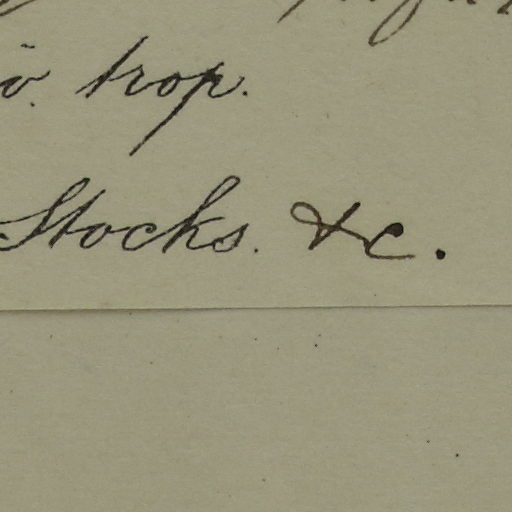 trop.
Stocks. &c.